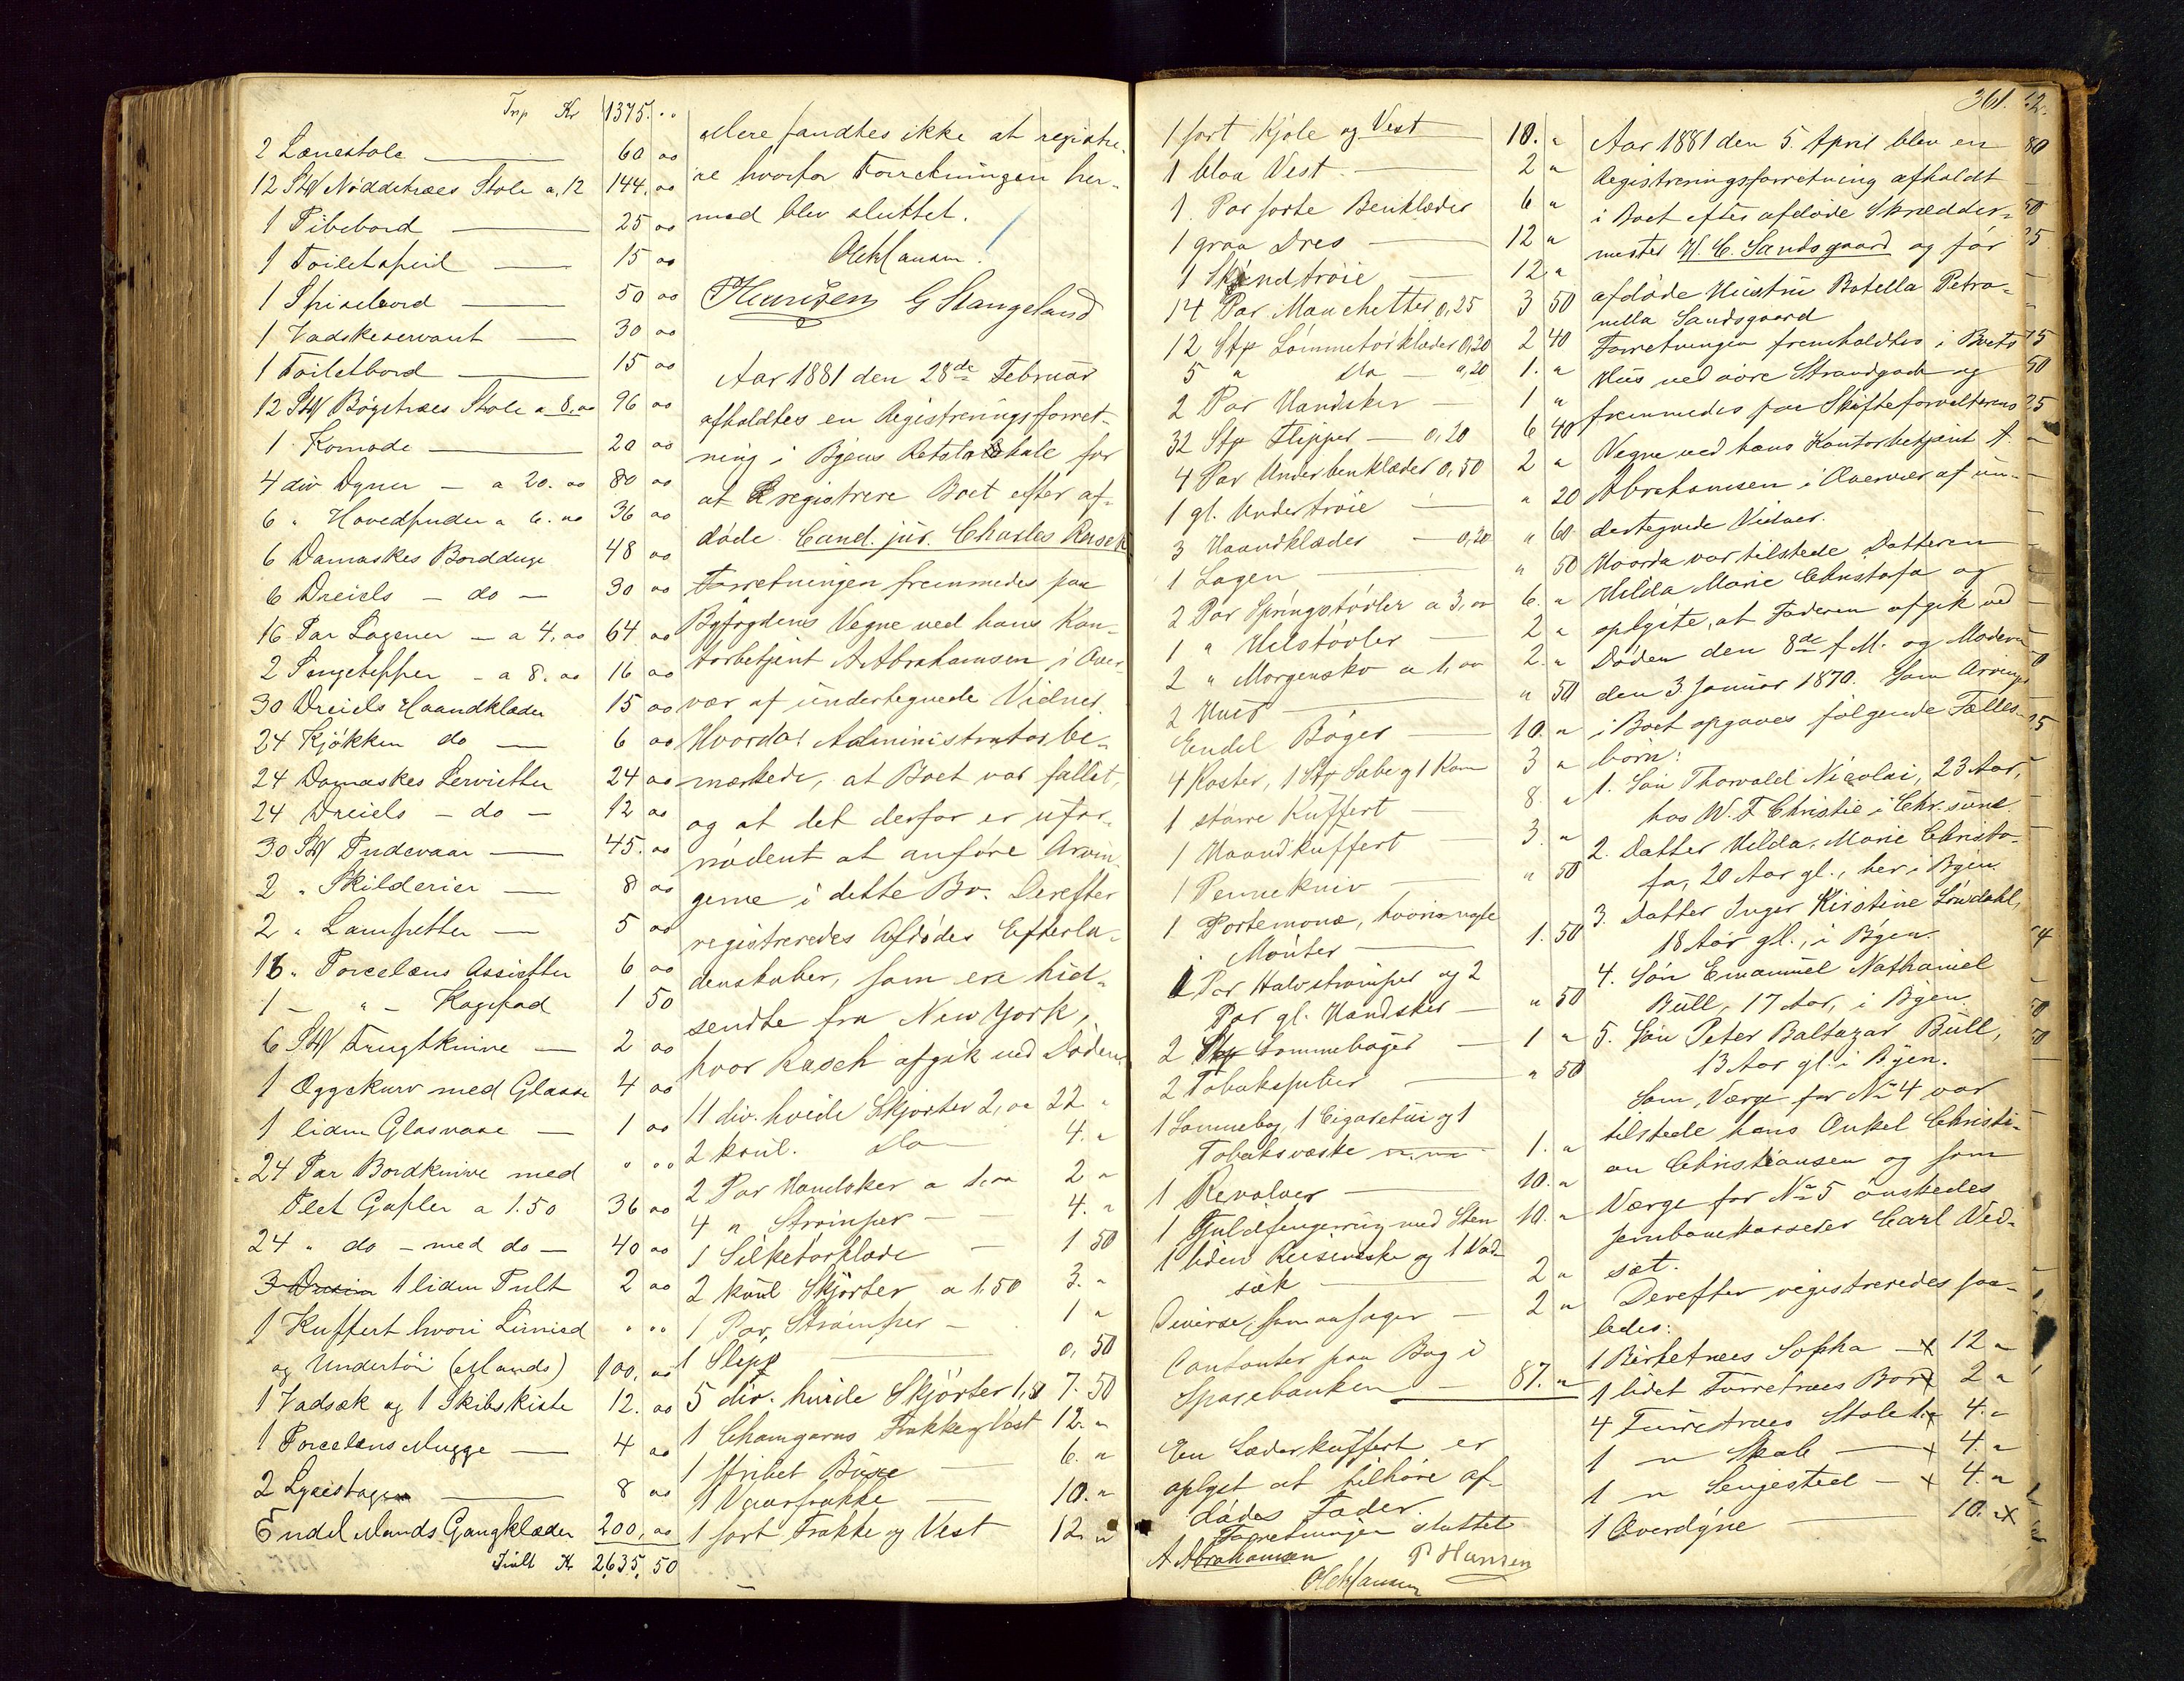 Trp Kr 1375. "
2 Lænestole 60 00
12 Stk Nøddetræes Stole a. 12 144. 00
1 Pibebord 25 00
1 Toiletspeil 15 00
1 Spisebord 50 00
1 Vadskeservant 30 00
1 Toiletbord 15 00
12 Stk Bøgetræes Stole a 8.00 96 00
1 Komode 20 00
4 div Dyner - a 20.00 80 00
6 " Hovedpuder a 6.00 36 00
6 Damaskes Borddüge 48 00
6 Dreiels - do - 30 00
16 Par Lagener - a 4.00 64 00
2 Sengetepper - a 8.00 16 00
30 Dreiels Haandklæder 15 00
24 Kjøkken do 6 00
24 Damaskes Servietter 24 00
24 Dreiels - do - 12 00
30 Stk Pudevaar 45. 00
2 " Skilderier 8 00
2 " Lampetter 5 00
16 " Porcelæns Assietter 6 00
1 - " - Kagefad 1 50
6 Stk Frugtknive 2 00
1 Æggekurv med Glasse 4 00
1 liden Glasvase 1 00
24 Par Bordknive med " "
Plet Gafler a 1.50 36 00
24 " do - med do - 40 00
3 Dusin 1 liden Pult 2 00
1 Kuffert hvori Linned " "
og Undertøi (Mands) 100. 00
1 Vadsæk og 1 Skibskiste 12. 00
1 Porcelæns Mugge 4 00
2 Lysestager 8 00
Endel Mands Gangklæder 200. 00
Ialt Kr 2635. 50
Mere fandtes ikke at registre-
re hvorfor Forretningen her-
med blev sluttet.
Ole Hansen
P Hansen G Stangeland
Aar 1881 den 28de Februar
afholdtes en Registreringsforret-
ning i Byens Retslokale for
at registrere Boet efter af-
døde Cand. jur. Charles Rasch
Forretningen fremmedes paa
Byfogdens Vegne ved hans Kon-
torbetjent A Abrahamsen i Over-
vær af undertegnede Vidner.
Hvorda! Administrator be-
mærkede, at Boet var fallit,
og at det derfor er ufor-
nødent at anføre Arvin-
gerne i dette Bo. Derefter
registreredes Afdødes Efterla-
denskaber, som ere hid-
sendte fra New York,
hvor Rasch afgik ved Døden
11 div. hvide Skjorter 2,00 22 "
2 koul. do 4. "
2 Par Handsker a 1,00 2 "
4 " Strømper 4. "
1 Silketørklæde 1 50
2 koul Skjorter a 1.50 3. "
1 Par Strømper 1 "
1 Slips 0, 50
5 div. hvide Skjorter 1,50 7. 50
1 Chamgarns Frakke og Vest 12. "
1 stribet Buxe 6. "
1 Vaarfrakke 10. "
1 sort Frakke og Vest 12. "
361.
1 sort Kjole og Vest 10. "
1 blaa Vest 2 "
1 Par sorte Benklæder 6 "
1 graa Dres 12 "
1 Skindtrøie 12. "
14 Par Manchetter 0,25 3 50
12 Stk Lommetørklæder 0,20 2 40
5 " do 0,20 1. "
2 Par Handsker 1 "
32 Stk Flipper - 0,20 6 40
4 Par Underbenklæder 0,50 2 "
1 gl. Undertrøie " 20
3 Haandklæder - 0,20 " 60
1 Lagen " 50
2 Par Springstøvler a 3,00 6. "
1 " Helstøvler 2 "
2 " Morgensko a 1,00 2. "
2 Huer " 50
Endel Bøger 10. "
4 Koster, 1 Stk Sæbe og 1 Kam 3 "
1 større Kuffert 8. "
1 Haandkuffert 3. "
1 Pennekniv " 50
1 Portemonæ, hvori nogle
Mønter 1. 50
1 Par Halvstrømper og 2
Par gl. Handsker " 50
2 Stk Lommebøger 1 "
2 Tobakspiber " 50
1 Lommebog, 1 Cigaretui og 1
Tobaksvæske 1. "
1 Revolver 10. "
1 Guldfingerring med Sten 10. "
1 liden Reisevæske og 1 Vad-
sæk 2 "
Diverse smaasager 2 "
Contanter paa Bog i
Sparebanken 87. "
En Læderkuffert er
oplyst at tilhøre af-
dødes Fader.
Forretningen sluttet
A Abrahamsen P Hansen
Ole Hansen
Aar 1881 den 5. April blev en
Registreringsforretning afholdt
i Boet efter afdøde Skrædder-
mester H. C. Sandsgaard og før
afdøde Hustru Botella Petro-
nella Sandsgaard
Forretningen fremholdtes i Boets
Hus ved øvre Strandgade og
fremmedes paa Skifteforvalterens
Vegne ved hans Kontorbetjent A.
Abrahamsen i Overvær af un-
dertegnede Vidner.
Hvorda var tilstede Datteren
Hilda Marie Christofa og
oplyste, at Faderen afgik ved
Døden den 8de f.M. og Moderen
den 3 Januar 1870. Som Arvinger
i Boet opgaves følgende Fælles-
børn:
1. Søn Thorvald Nicolai, 23 Aar,
hos W. F Christie i Chr.sund
2. Datter Hilda Marie Christo-
fa, 20 Aar gl., her i Byen
3. Datter Inger Kirstine Løvdahl,
18 Aar gl., i Byen.
4. Søn Emanuel Nathaniel
Bull, 17 Aar, i Byen.
5. Søn Peter Baltazar Bull,
13 Aar gl. i Byen.
Som Værge for No 4 var
tilstede hans Onkel Christi-
an Christiansen og som
Værge for No 5 ønskedes
Jernbanekasserer Carl Ved-
sæt.
Derefter registreredes saa-
ledes:
1 Birketræes Sopha x 12 "
1 lidet Furretræes Bord x 2 "
4 Furretræes Stole x 4. "
1 " Skab x 4. "
1 " Sengested x 4. "
1 Overdyne 10. " x